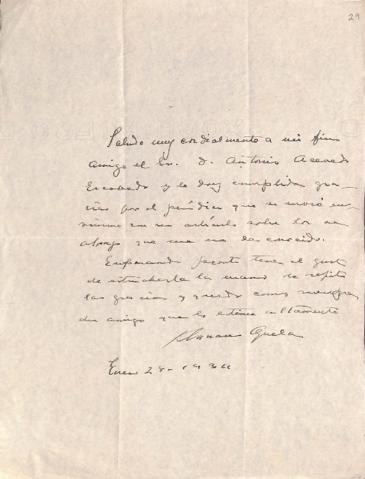 29
Saludo muy cordialmente a mi fino
amigo el Sr. D. Antonio Acevedo
Escobedo y le doy cumplidas gra-
cias por el periódico que se sirvió en-
viarme con su artículo sobre los de
abajo que me era
Esperando pronto tener el gusto
de estrecharle la mano le repito
las gracias y quedo como siempre
su amigo que lo estima altamente
Mariano Azuela
Enero 28-1934